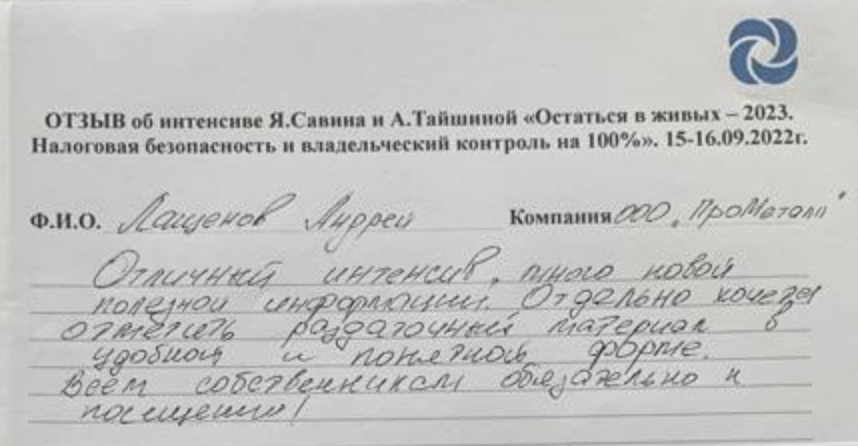 ОТЗЫВ об интенсиве Я.Савина и А.Тайшиной «Остаться в живых – 2023.
Налоговая безопасность и владельческий контроль на 100%». 15-16.09.2022г.
Ф.И.О. Лащенов Андрей Компания ООО „ПроМеталл"
Отличный интенсив, много новой
полезной информации. Отдельно хочется
отметить раздаточный материал в
удобной и понятной форме.
Всем собственникам обязательно к
посещению!